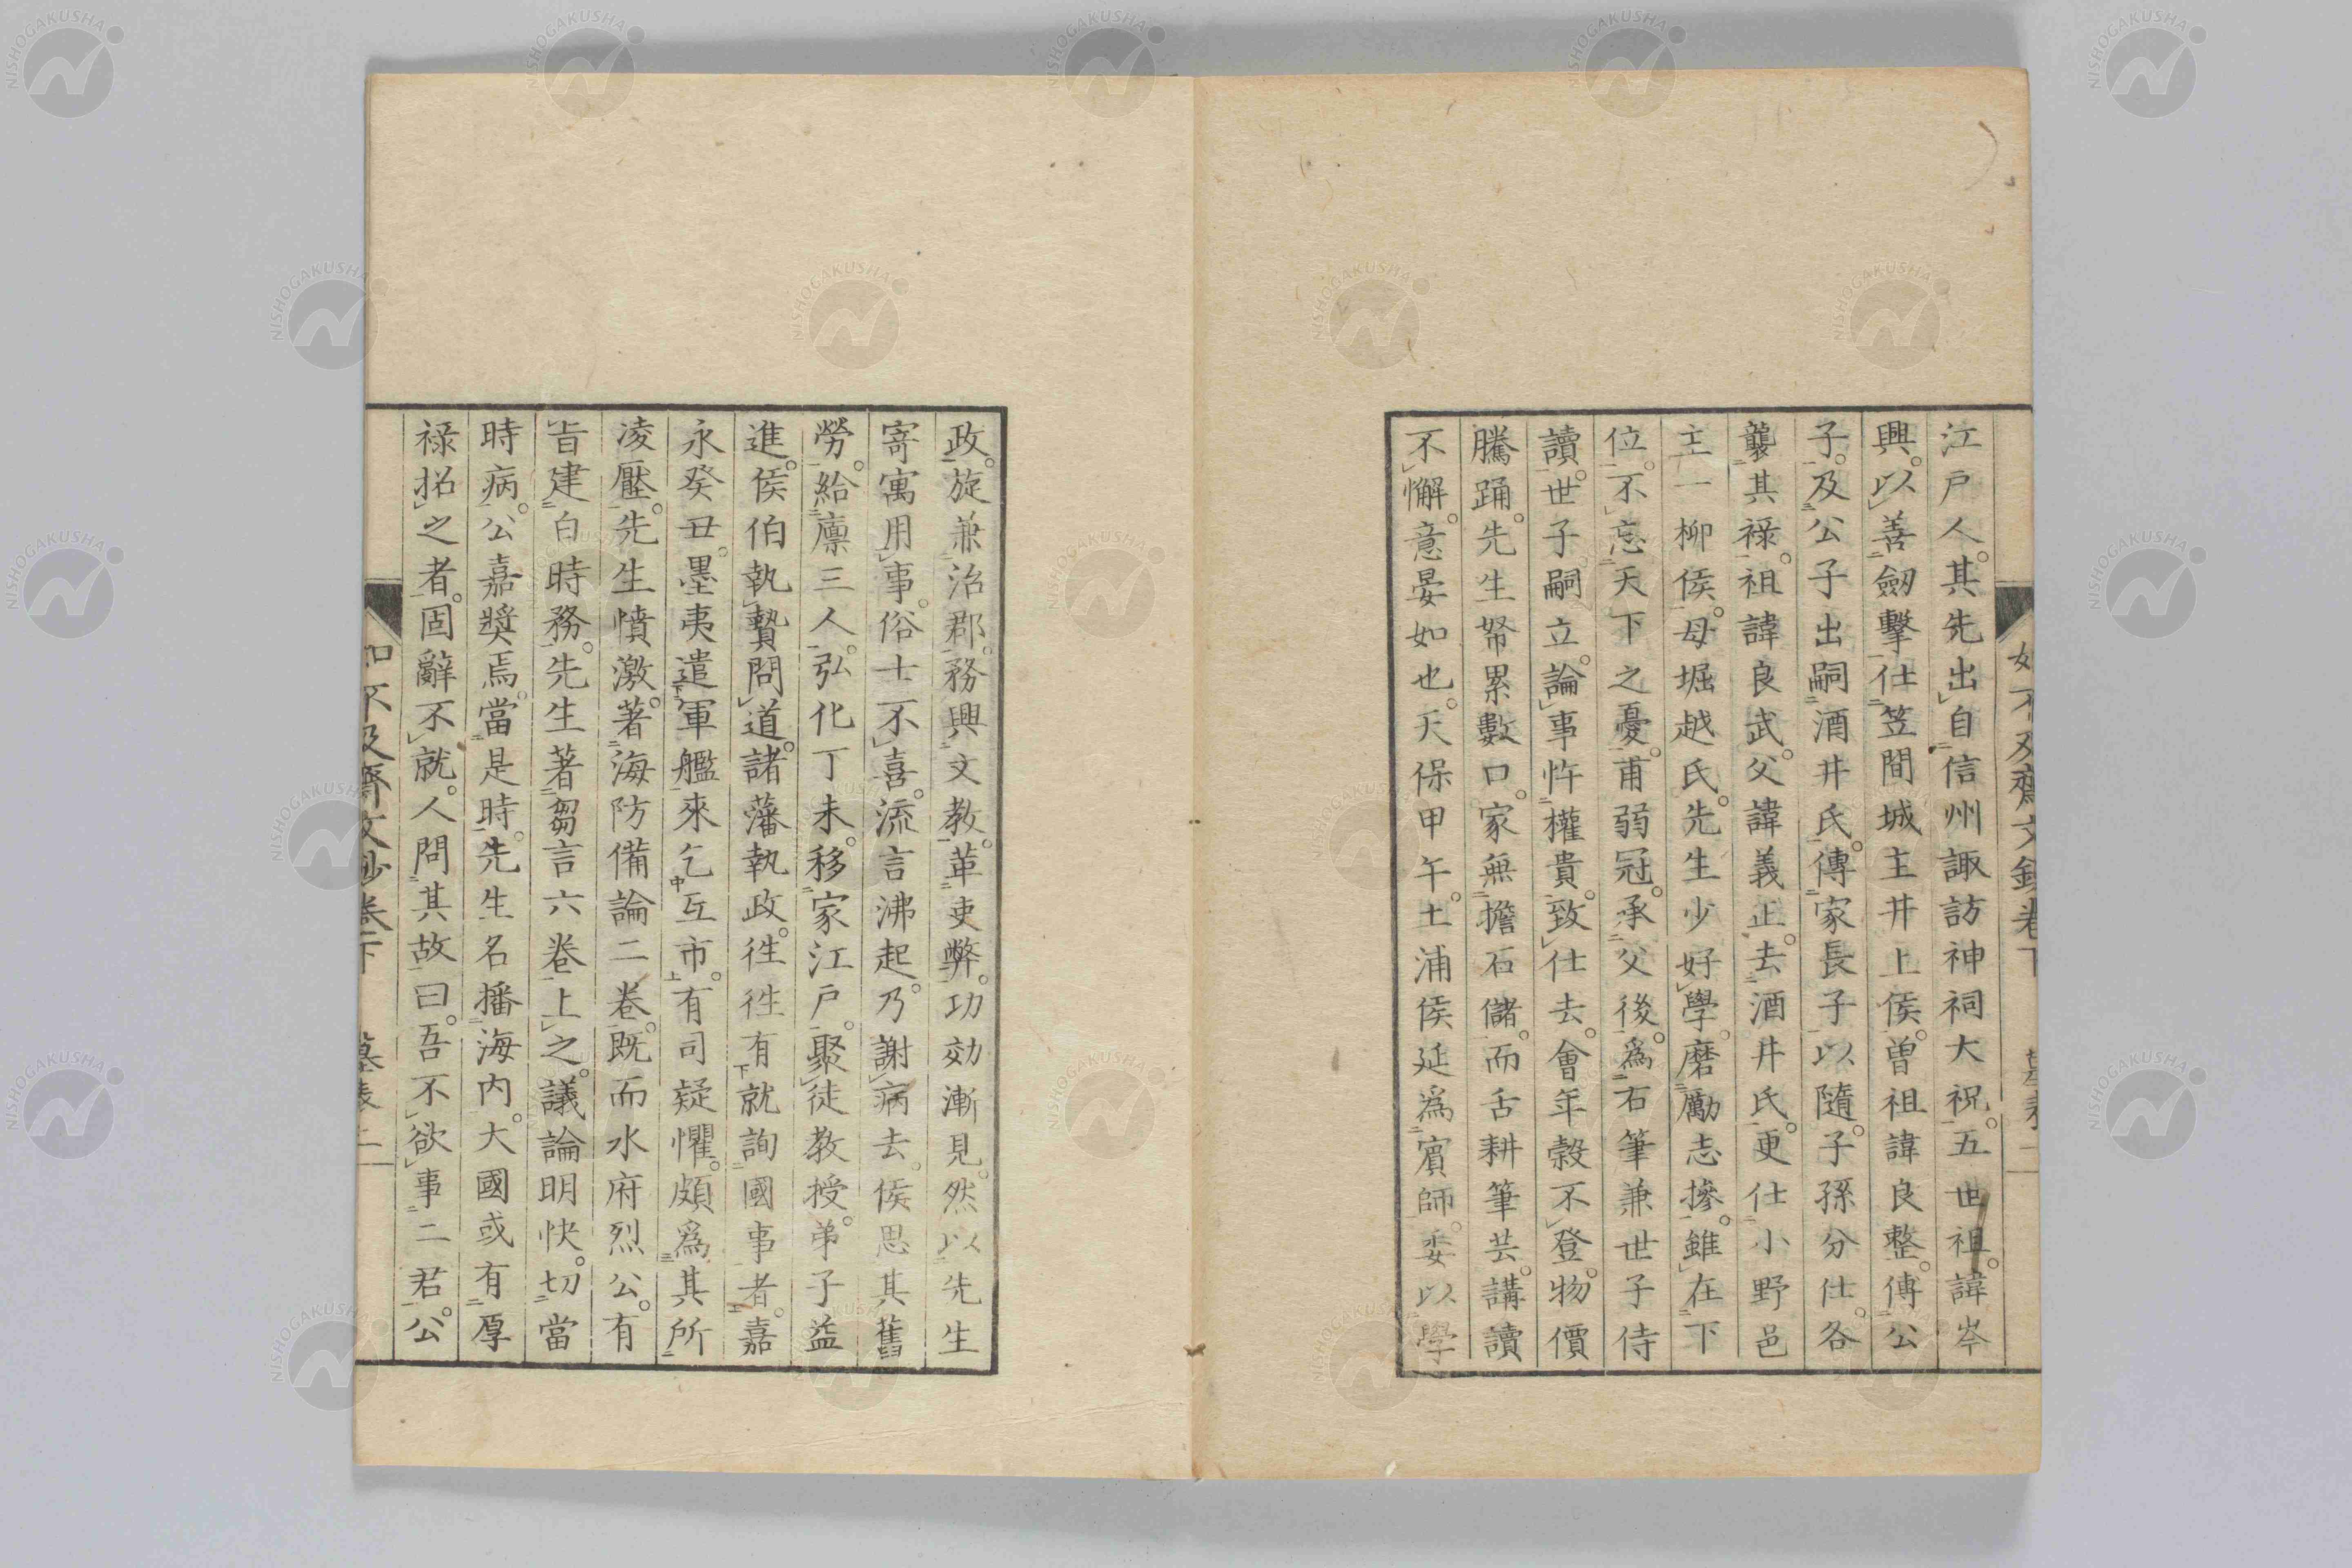 如不及齋文鈔卷下 墓表 二
江戸人。其先出自信州諏訪神祠大祝。五世祖。諱岑
興。以善劒擊仕笠間城主井上侯。曽祖諱良整。傅公
子。及公子出嗣酒井氏。傳家長子以隨。子孫分仕。各
襲其祿。祖諱良武。父諱義正。去酒井氏。更仕小野邑
主一柳侯。母堀越氏。先生少好學。磨勵志摻。雖在下
位。不忘天下之憂。甫弱冠。承父後。爲右筆兼世子侍
讀。世子嗣立。論事忤權貴。致仕去。會年穀不登。物價
騰踊。先生帑累數口。家無擔石儲。而舌耕筆芸。講讀
不懈。意晏如也。天保甲午。土浦侯延爲賓師。委以學
政。旋兼治郡。務興文教。革吏弊。功効漸見。然以先生
寄寓用事。俗士不喜。流言沸起。乃謝病去。侯思其舊
勞。給廩三人。弘化丁未。移家江戸。聚徒教授。弟子益
進。侯伯執贄問道。諸藩執政。往往有就詢國事者。嘉
永癸丑。墨夷遣軍艦來乞互市。有司疑懼。頗爲其所
凌壓。先生憤激。著海防備論二卷。既而水府烈公。有
旨建白時務。先生著芻言六卷上之。議論明快。切當
時病。公嘉奬焉。當是時。先生名播海内。大國或有厚
祿招之者。固辭不就。人問其故。曰。吾不欲事二君。公
如不及齋文鈔卷下 墓表 二
NISHOGAKUSHA